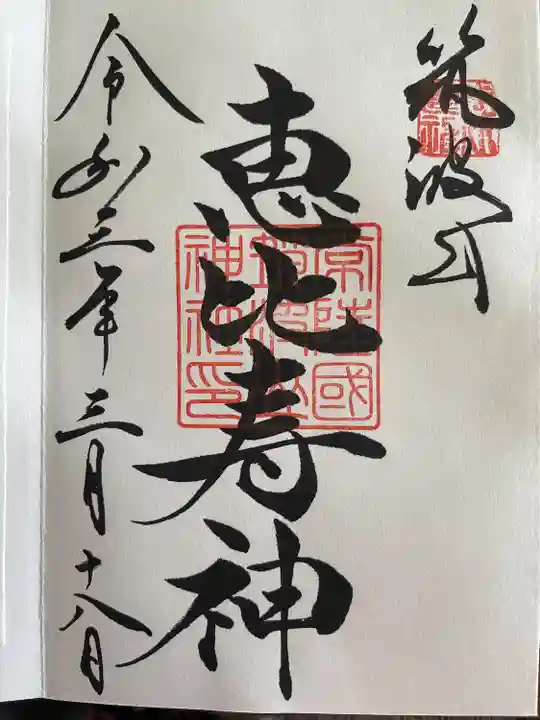 筑波山
恵比寿神
常陸國
筑波山
神社印
令和三年三月十八日